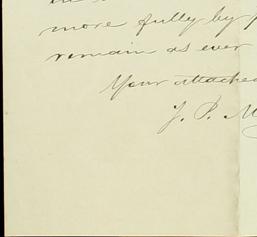 more fully by
remain as ever
Your attached
J. P. M